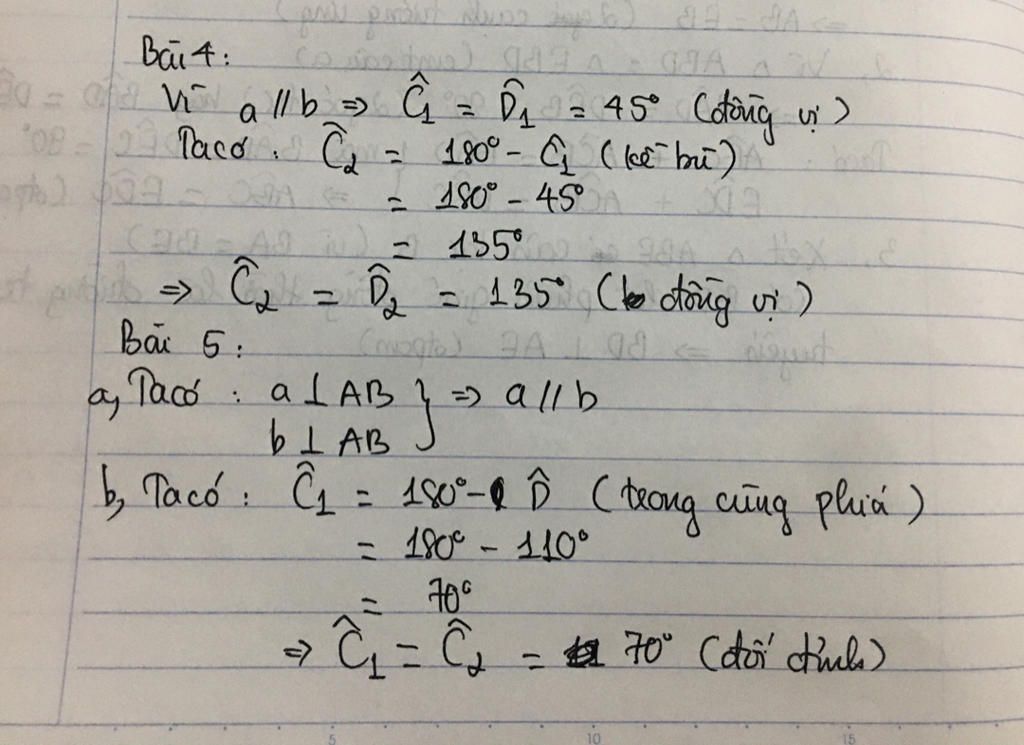 Bài 4:
Vì a // b => Ĉ₁ = D̂₁ = 45° (đồng vị)
Ta có : Ĉ₂ = 180° - Ĉ₁ (kề bù)
= 180° - 45°
= 135°
=> Ĉ₂ = D̂₂ = 135° (đồng vị)
Bài 5 :
a, Ta có : a ⊥ AB } => a // b
b ⊥ AB
b, Ta có : Ĉ₁ = 180° - D̂ (trong cùng phía)
= 180° - 110°
= 70°
=> Ĉ₁ = Ĉ₂ = 70° (đối đỉnh)
5 10 15